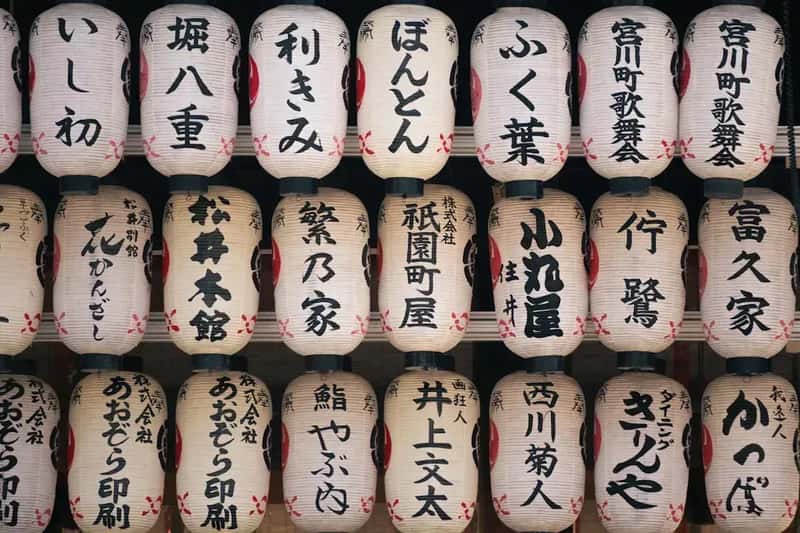 いし初
堀八重
利きみ
ぼんとん
ふく葉
宮川町歌舞会
宮川町歌舞会
松井別館
花かんざし
松井本館
繁乃家
株式会社
祇園町屋
小丸屋
住井
富久家
株式会社
あおぞら印刷
株式会社
あおぞら印刷
鮨やぶ内
画狂人
井上文太
西川菊人
ダイニング
きりんや